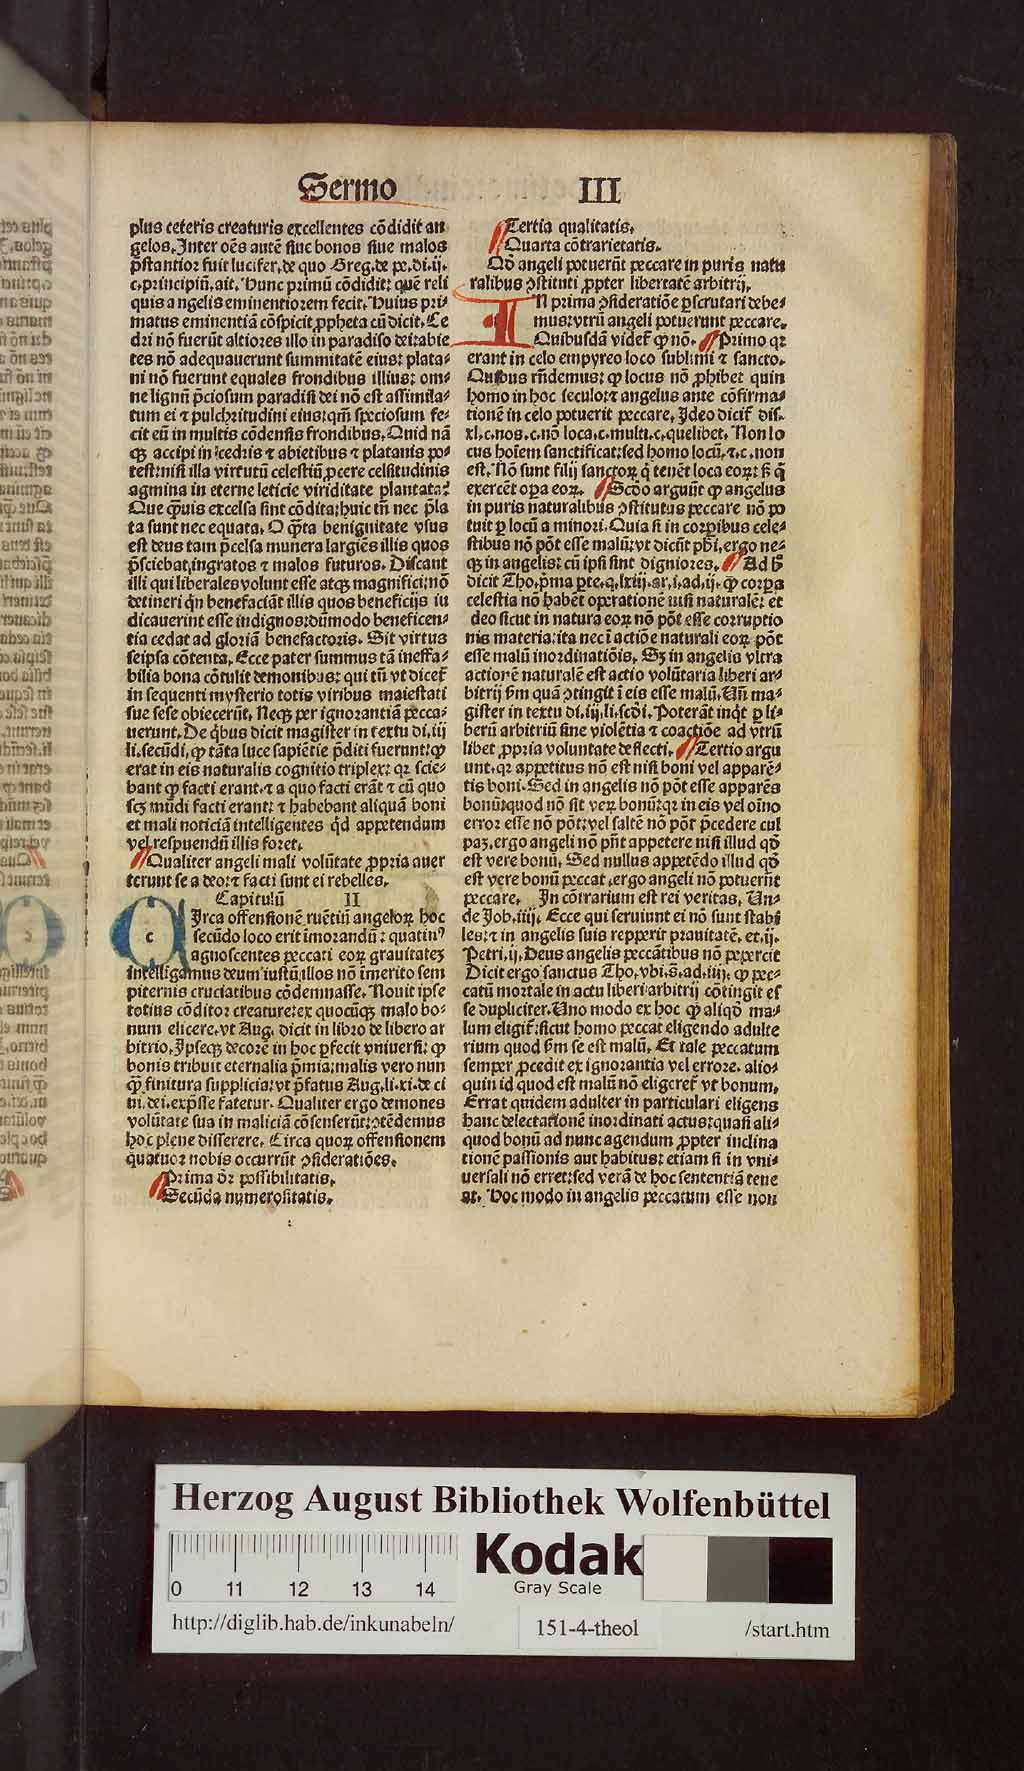 Sermo III
plus ceteris creaturis excellentes cõdidit an
gelos. Inter oẽs autẽ siue bonos siue malos
p̃stantior fuit lucifer, de quo Greg. de pe. di. ij.
c. principiũ, ait. Hunc primũ cõdidit: quẽ reli
quis angelis eminentiorem fecit. Huius pri-
matus eminentiã cõspicit ꝓpheta cũ dicit. Ce
dri nõ fuerũt altiores illo in paradiso dei: abie
tes nõ adequauerunt summitatẽ eius: plata-
ni nõ fuerunt equales frondibus illius: om-
ne lignũ p̃ciosum paradisi dei nõ est assimila-
tum ei ⁊ pulchritudini eius: qm̃ speciosum fe-
cit eũ in multis cõdensis frondibus. Quid nã
qꝫ accipi in cedris ⁊ abietibus ⁊ platanis po-
test: nisi illa virtutũ celestiũ ꝓcere celsitudinis
agmina in eterne leticie viriditate plantata?
Que q̃uis excelsa sint cõdita: huic tñ nec p̃la
ta sunt nec equata. O q̃ta benignitate vsus
est deus tam p̃celsa munera largiẽs illis quos
p̃sciebat, ingratos ⁊ malos futuros. Discant
illi qui liberales volunt esse atqꝫ magnifici: nõ
detineri qͥn benefaciãt illis quos beneficijs iu
dicauerint esse indignos: dũmodo beneficen-
tia cedat ad gloriã benefactoris. Sit virtus
seipsa cõtenta. Ecce pater summus tã ineffa-
bilia bona cõtulit demonibus: qui tñ vt dicet̃
in sequenti mysterio totis viribus maiestati
sue sese obiecerũt. Neqꝫ per ignorantiã pecca-
uerunt. De qͥbus dicit magister in textu di. iij
li. secũdi, ꝙ tãta luce sapiẽtie p̃diti fuerunt: ꝙ
erat in eis naturalis cognitio triplex: qꝛ scie-
bant ꝙ facti erant, ⁊ a quo facti erãt ⁊ cũ quo
scꝫ mũdi facti erant: ⁊ habebant aliquã boni
et mali noticiã intelligentes qͥd appetendum
vel respuendũ illis foret.
Qualiter angeli mali volũtate ꝓpria auer
terunt se a deo: ⁊ facti sunt ei rebelles.
Capitulũ II
c
Irca offensionẽ ruẽtiũ angeloꝝ hoc
secũdo loco erit ĩmorandũ: quatin⁹
agnoscentes peccati eoꝝ grauitatẽ
intelligamus deum iustũ: illos nõ ĩmerito sem
piternis cruciatibus cõdemnasse. Nouit ipse
totius cõditor creature: ex quocũqꝫ malo bo-
num elicere. vt Aug. dicit in libro de libero ar
bitrio. Ipseqꝫ decorẽ in hoc ꝑfecit vniuersi: ꝙ
bonis tribuit eternalia p̃mia: malis vero nun
q̃ finitura supplicia: vt p̃fatus Aug. li. xi. de ci
ui. dei. exp̃sse fatetur. Qualiter ergo demones
volũtate sua in maliciã cõsenserũt: oñtẽdemus
hoc plene disserere. Circa quoꝝ offensionem
quatuor nobis occurrũt ꝯsideratiões.
Prima d̃r possibilitatis.
Secũda numerositatis.
Tertia qualitatis.
Quarta cõtrarietatis.
Qð angeli potuerũt peccare in puris natu
ralibus ꝯstituti ꝓpter libertatẽ arbitrij.
IN prima ꝯsideratiõe ꝑscrutari debe-
mus: vtrũ angeli potuerunt peccare.
Quibusdã videt̃ ꝙ nõ. Primo qꝛ
erant in celo empyreo loco sublimi ⁊ sancto.
Quibus rñdemus: ꝙ locus nõ ꝓhibet quin
homo in hoc seculo: ⁊ angelus ante cõfirma-
tionẽ in celo potuerit peccare. Ideo dicit̃ dis.
xl. c. nos. c. nõ loca. c. multi. c. quelibet. Non lo
cus hoĩem sanctificat: sed homo locũ. ⁊. c. non
est. Nõ sunt filij sanctoꝝ qͥ tenẽt loca eoꝝ: s̃ qͥ
exercẽt oꝑa eoꝝ. Scðo arguũt ꝙ angelus
in puris naturalibus ꝯstitutus peccare nõ po
tuit ꝑ locũ a minori. Quia si in corꝑibus cele-
stibus nõ põt esse malũ: vt dicũt ph̃i, ergo ne-
qꝫ in angelis: cũ ipsi sint digniores. Ad h̃
dicit Tho. p̃ma ꝑte. q. lxiij. ar. i. ad. ij. ꝙ corꝑa
celestia nõ habẽt operationẽ nisi naturalẽ: et
deo sicut in natura eoꝝ nõ põt esse corruptio
nis materia: ita nec ĩ actiõe naturali eoꝝ põt
esse malũ inordinatiõis. Sꝫ in angelis vltra
actionẽ naturalẽ est actio volũtaria liberi ar-
bitrij s̃m quã ꝯtingit ĩ eis esse malũ. Uñ ma-
gister in textu di. iij. li. scði. Poterãt inqͥt ꝑ li-
berũ arbitriũ sine violẽtia ⁊ coactiõe ad vtrũ
libet ꝓpria voluntate deflecti. Tertio argu
unt, qꝛ appetitus nõ est nisi boni vel apparẽ-
tis boni. Sed in angelis nõ põt esse apparẽs
bonũ: quod nõ sit veꝝ bonũ: qꝛ in eis vel oĩno
error esse nõ põt: vel saltẽ nõ põt p̃cedere cul
paꝫ, ergo angeli nõ pñt appetere nisi illud qð
est vere bonũ. Sed nullus appetẽdo illud qð
est vere bonũ peccat, ergo angeli nõ potuerũt
peccare. In cõtrarium est rei veritas. Un-
de Job. iiij. Ecce qui seruiunt ei nõ sunt stabi
les: ⁊ in angelis suis repperit prauitatẽ. et. ij.
Petri. ij. Deus angelis peccãtibus nõ pepercit
Dicit ergo sanctus Tho. vbi. s̃. ad. iiij. ꝙ pec-
catũ mortale in actu liberi arbitrij cõtingit es
se dupliciter. Uno modo ex hoc ꝙ aliqð ma-
lum eligit̃: sicut homo peccat eligendo adulte
rium quod s̃m se est malũ. Et tale peccatum
semper ꝓcedit ex ignorantia vel errore. alio-
quin id quod est malũ nõ eligeret̃ vt bonum.
Errat quidem adulter in particulari eligens
hanc delectationẽ inordinati actus: quasi ali-
quod bonũ ad nunc agendum ꝓpter inclina
tionẽ passionis aut habitus: etiam si in vni-
uersali nõ erret: sed verã de hoc sententiã tene
at. Hoc modo in angelis peccatum esse non
Herzog August Bibliothek Wolfenbüttel
Kodak
Gray Scale
0 11 12 13 14
http://diglib.hab.de/inkunabeln/ 151-4-theol /start.htm